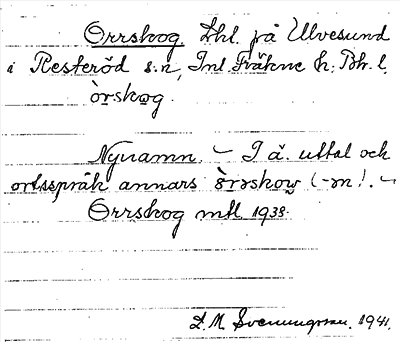 Orrskog. Lhl. på Ulvesund
i Resteröd s:n, Inl. Fräkne h. Boh. l.
òrskog.
Nynamn. – I ä. uttal och
ortsspråk annars
Orrskog mtl. 1938.
L. M. Svenungsson. 1941.